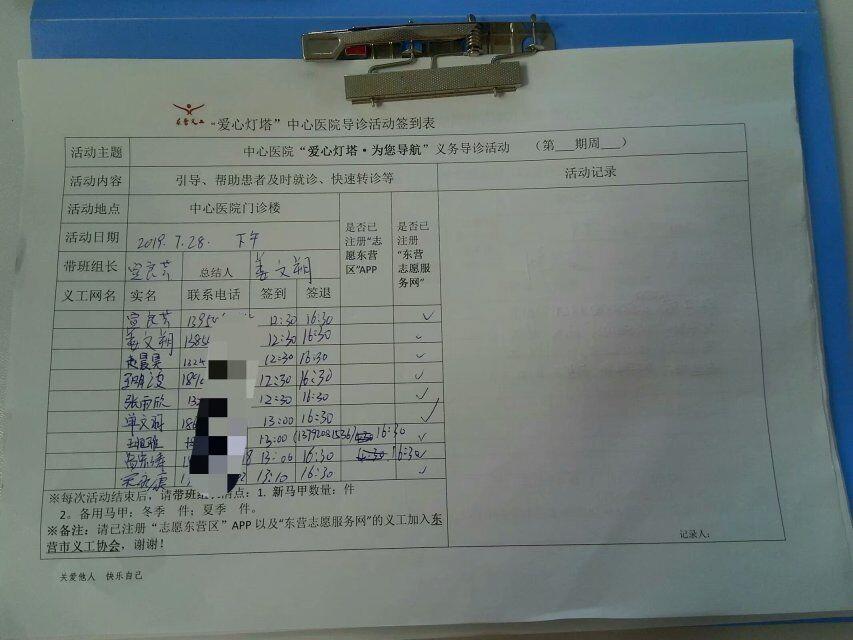 东营义工 “爱心灯塔”中心医院导诊活动签到表
活动主题 中心医院“爱心灯塔·为您导航”义务导诊活动 (第___期周___)
活动内容 引导、帮助患者及时就诊、快速转诊等 活动记录
活动地点 中心医院门诊楼 是否已注册“志愿东营区”APP 是否已注册“东营志愿服务网”
活动日期 2019.7.28. 下午
带班组长 宣良芳 总结人 姜文朔
义工网名 实名 联系电话 签到 签退
宣良芳 12:30 16:30 ✓
姜文朔 12:30 16:30 ✓
赵晨昊 12:30 16:30 ✓
12:30 16:30 ✓
张雨欣 12:30 16:30 ✓
单文羽 13:00 16:30 ✓
13:00 16:30 ✓
13:00 16:30 16:30 ✓
13:10 16:30 ✓
※每次活动结束后，请带班组长清点：1. 新马甲数量： 件
2。备用马甲：冬季 件；夏季 件。
※备注：请已注册“志愿东营区”APP 以及“东营志愿服务网”的义工加入东
营市义工协会，谢谢！
记录人：
关爱他人 快乐自己